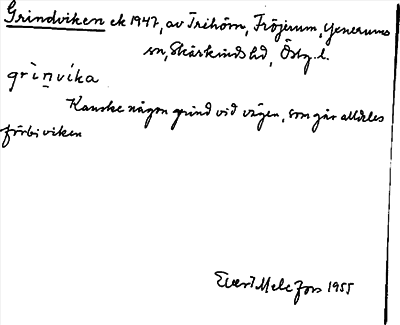 Grindviken ek 1947, av Trihörn, Fröjerum, Gryerums
sn, Skärkinds hd, Östg. l.
gri̱ṉvika
Kanske någon grind vid vägen, som går alldeles
förbi viken
Evert Melefors 1955